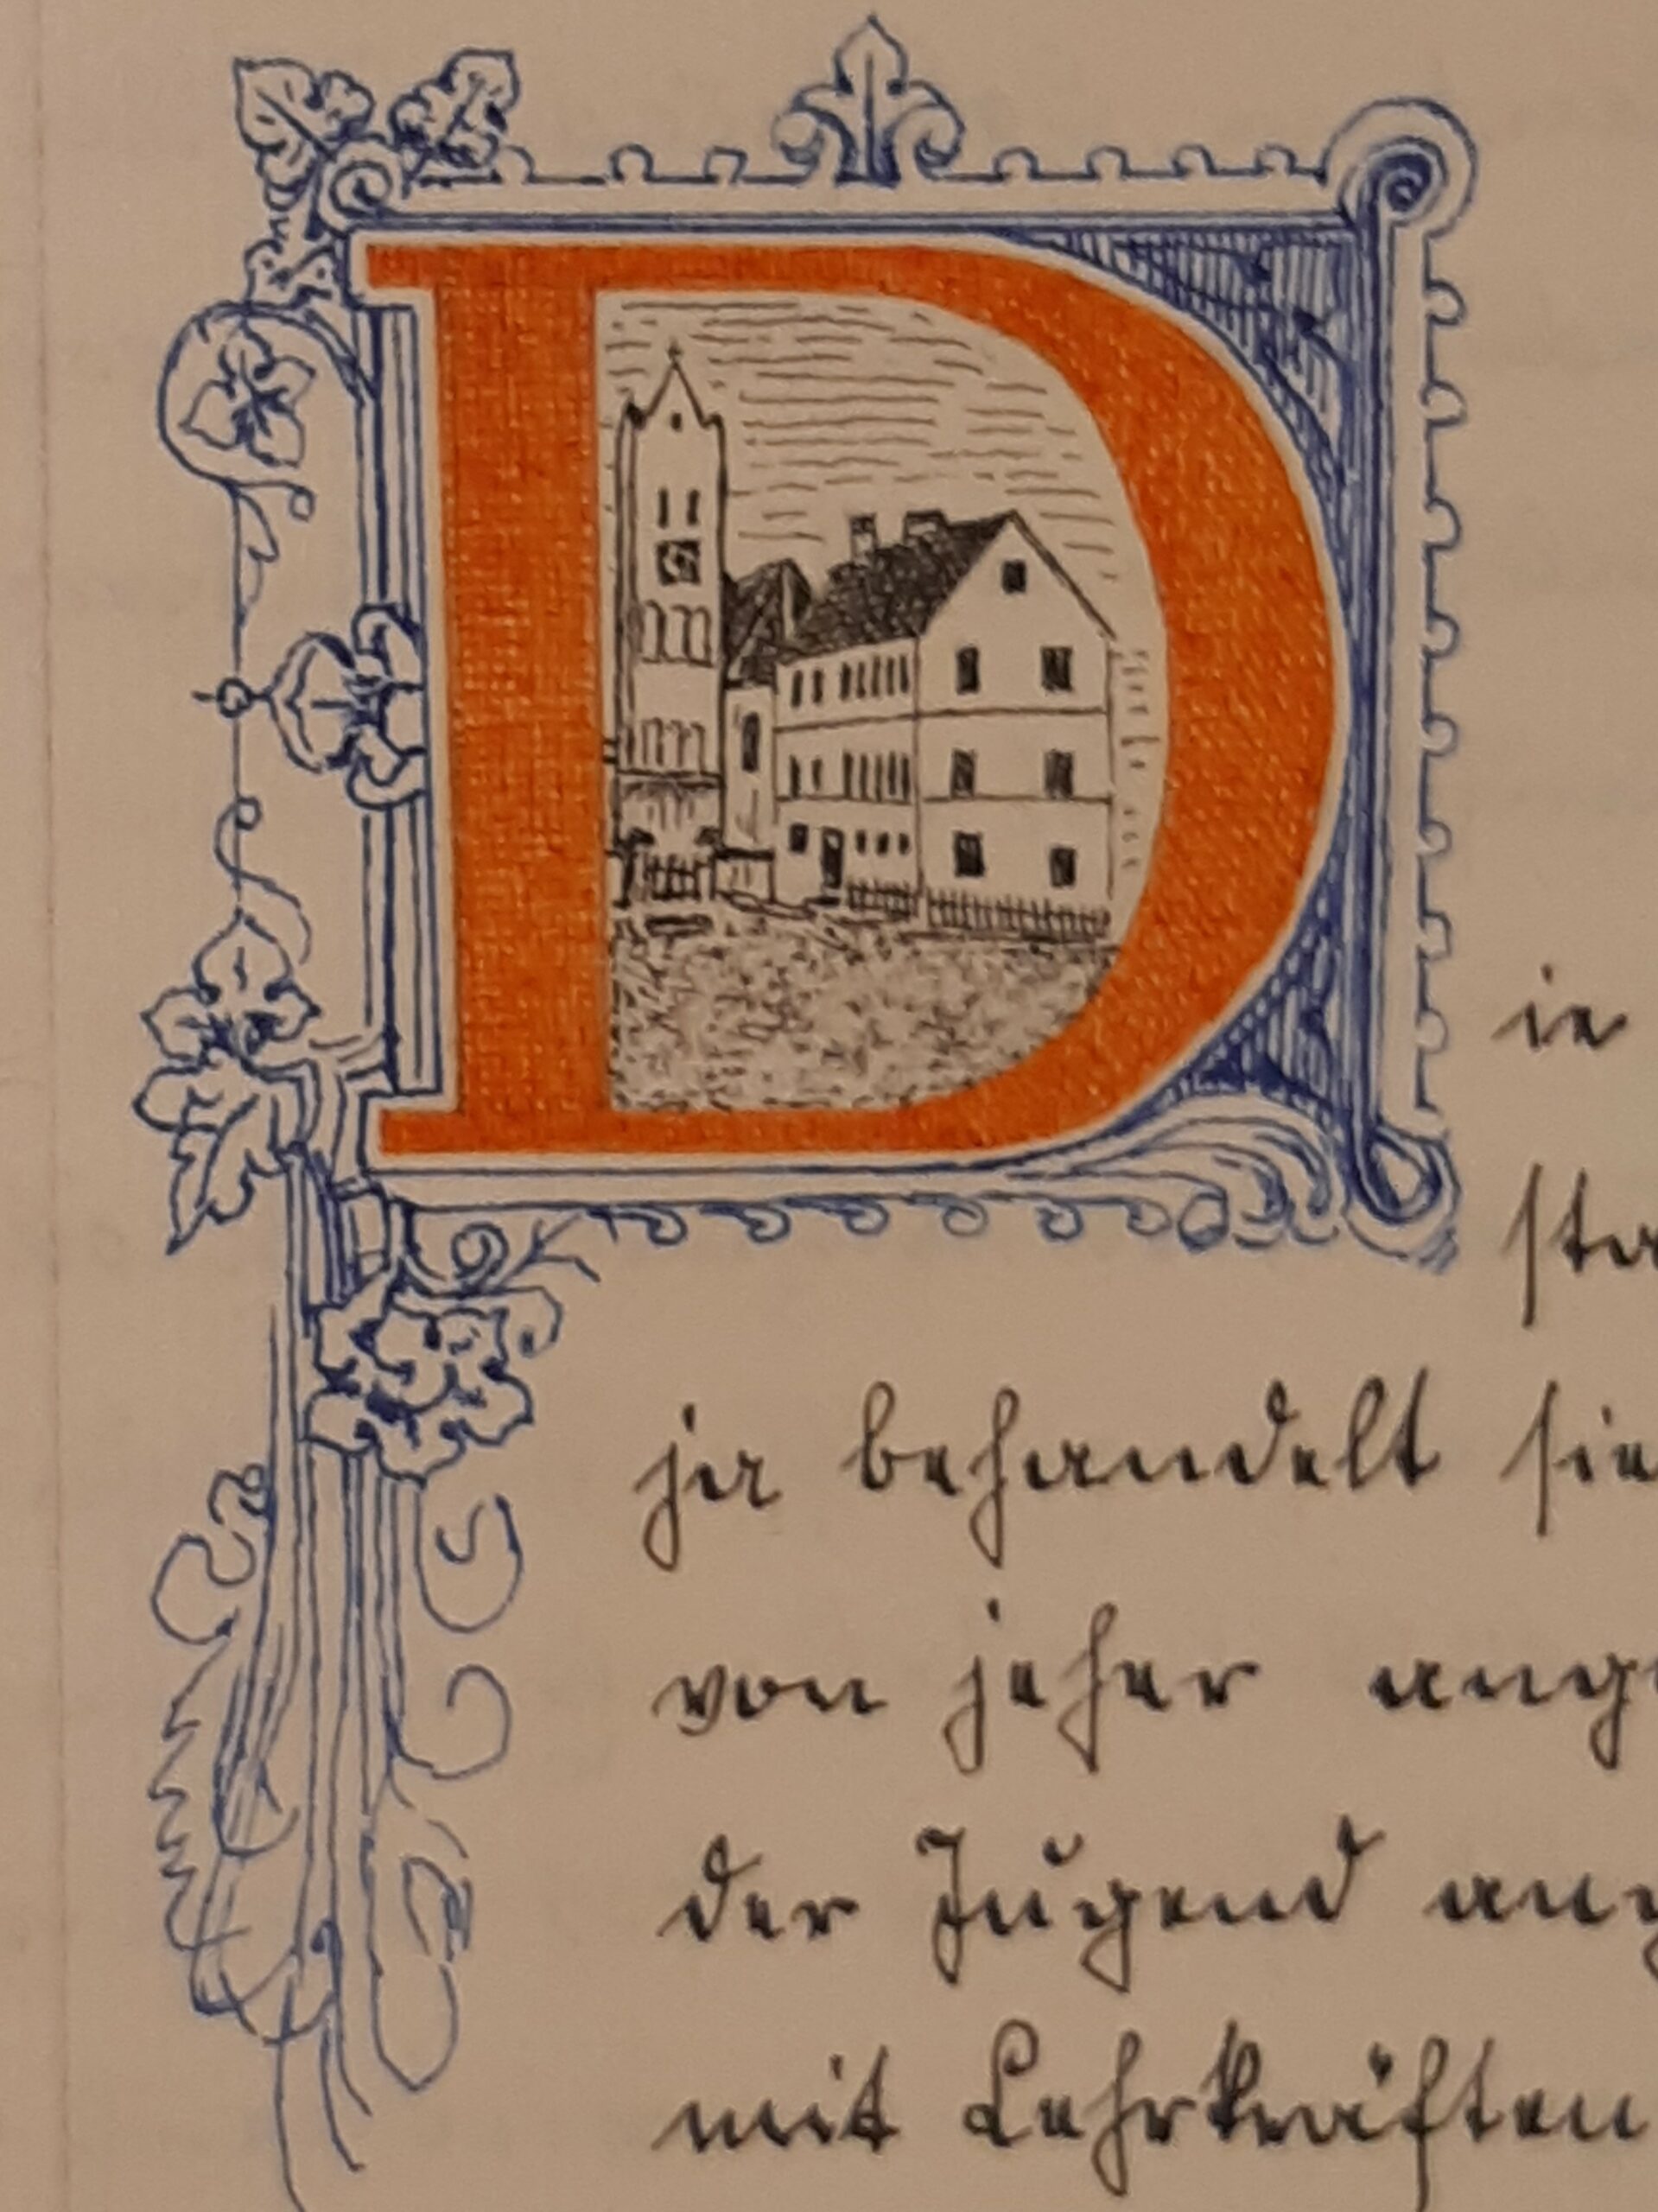 Die
sta
behandelt sie
von jeher ang
der Jugend ang
mit Lehrkräften